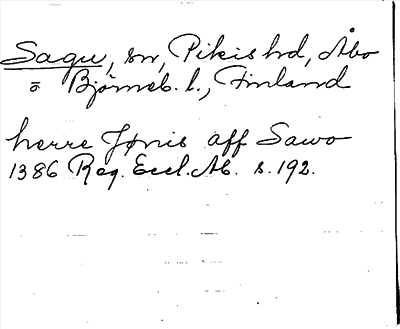 Sagu, sn, Pikis hd, Åbo
o Björneb. l., Finland
herre Jønis aff Sawo
1386 Reg. Eccl. Ab. s. 192.